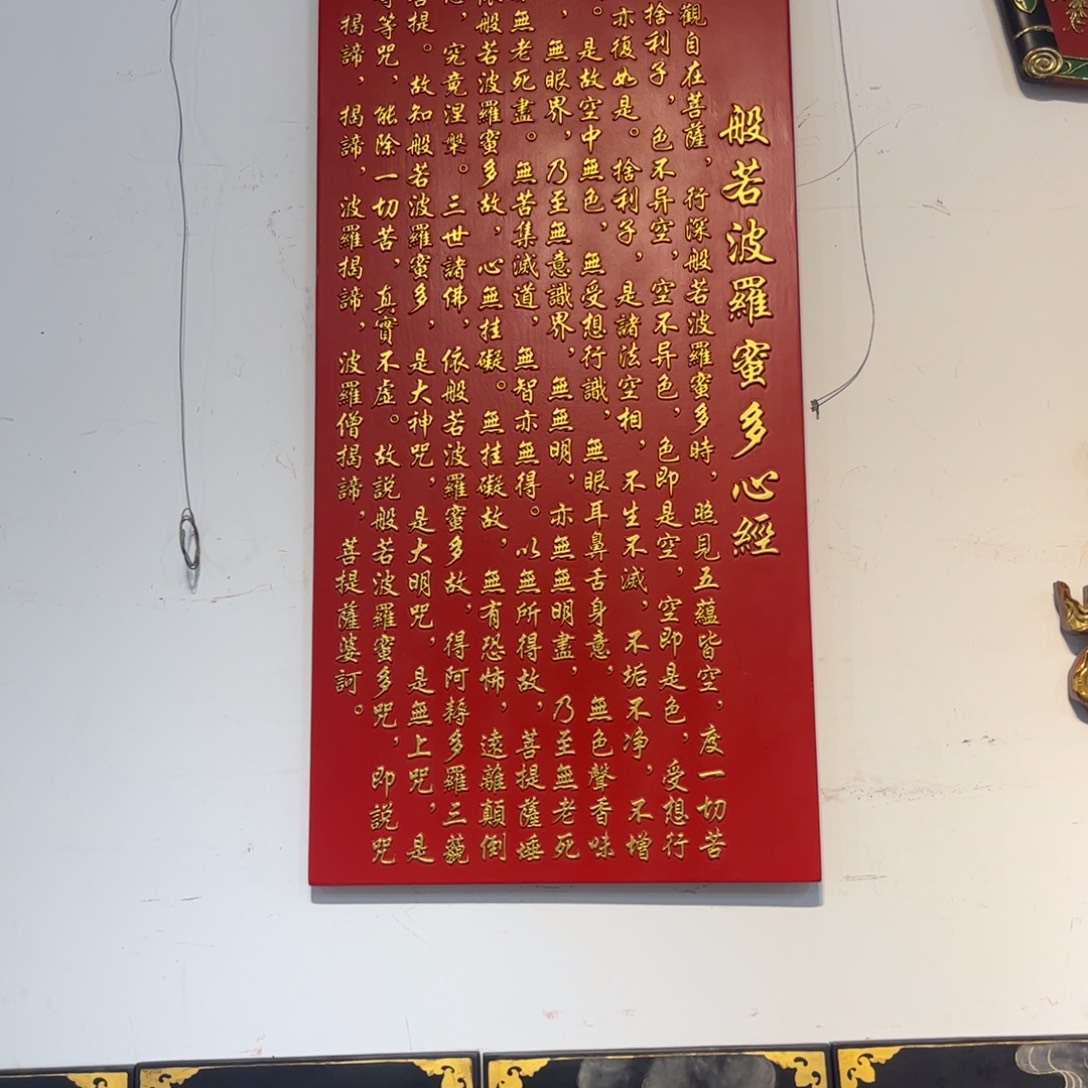 般若波羅蜜多心經
觀自在菩薩，行深般若波羅蜜多時，照見五蘊皆空，度一切苦
捨利子，色不异空，空不异色，色即是空，空即是色，受想行
亦復如是。捨利子，是諸法空相，不生不滅，不垢不净，不增
。是故空中無色，無受想行識，無眼耳鼻舌身意，無色聲香味
，無眼界，乃至無意識界，無無明，亦無無明盡，乃至無老死
無老死盡。無苦集滅道，無智亦無得。以無所得故，菩提薩埵
依般若波羅蜜多故，心無挂礙。無挂礙故，無有恐怖，遠離顛倒
，究竟涅槃。三世諸佛，依般若波羅蜜多故，得阿耨多羅三藐
菩提。故知般若波羅蜜多，是大神咒，是大明咒，是無上咒，是
等等咒，能除一切苦，真實不虛。故説般若波羅蜜多咒，即説咒
揭諦，揭諦，波羅揭諦，波羅僧揭諦，菩提薩婆訶。